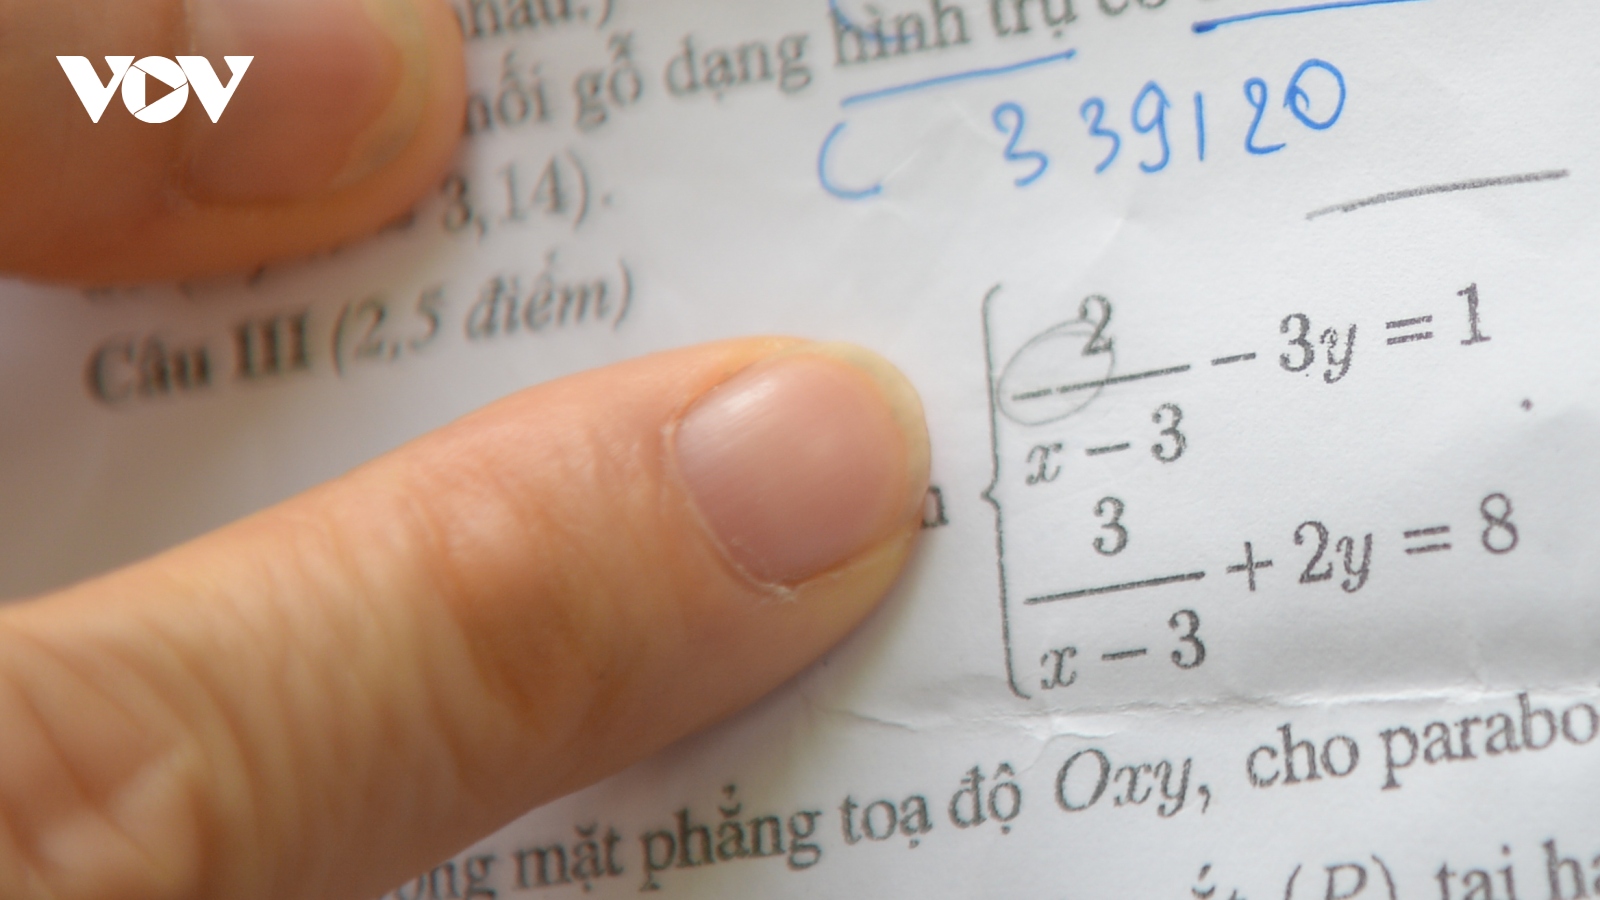 VOV
nhau.)
khối gỗ dạng hình trụ có
339120
3,14).
Câu III (2,5 điểm)
2/(x − 3) − 3y = 1
3/(x − 3) + 2y = 8
mặt phẳng toạ độ Oxy, cho parabo
(P) tại